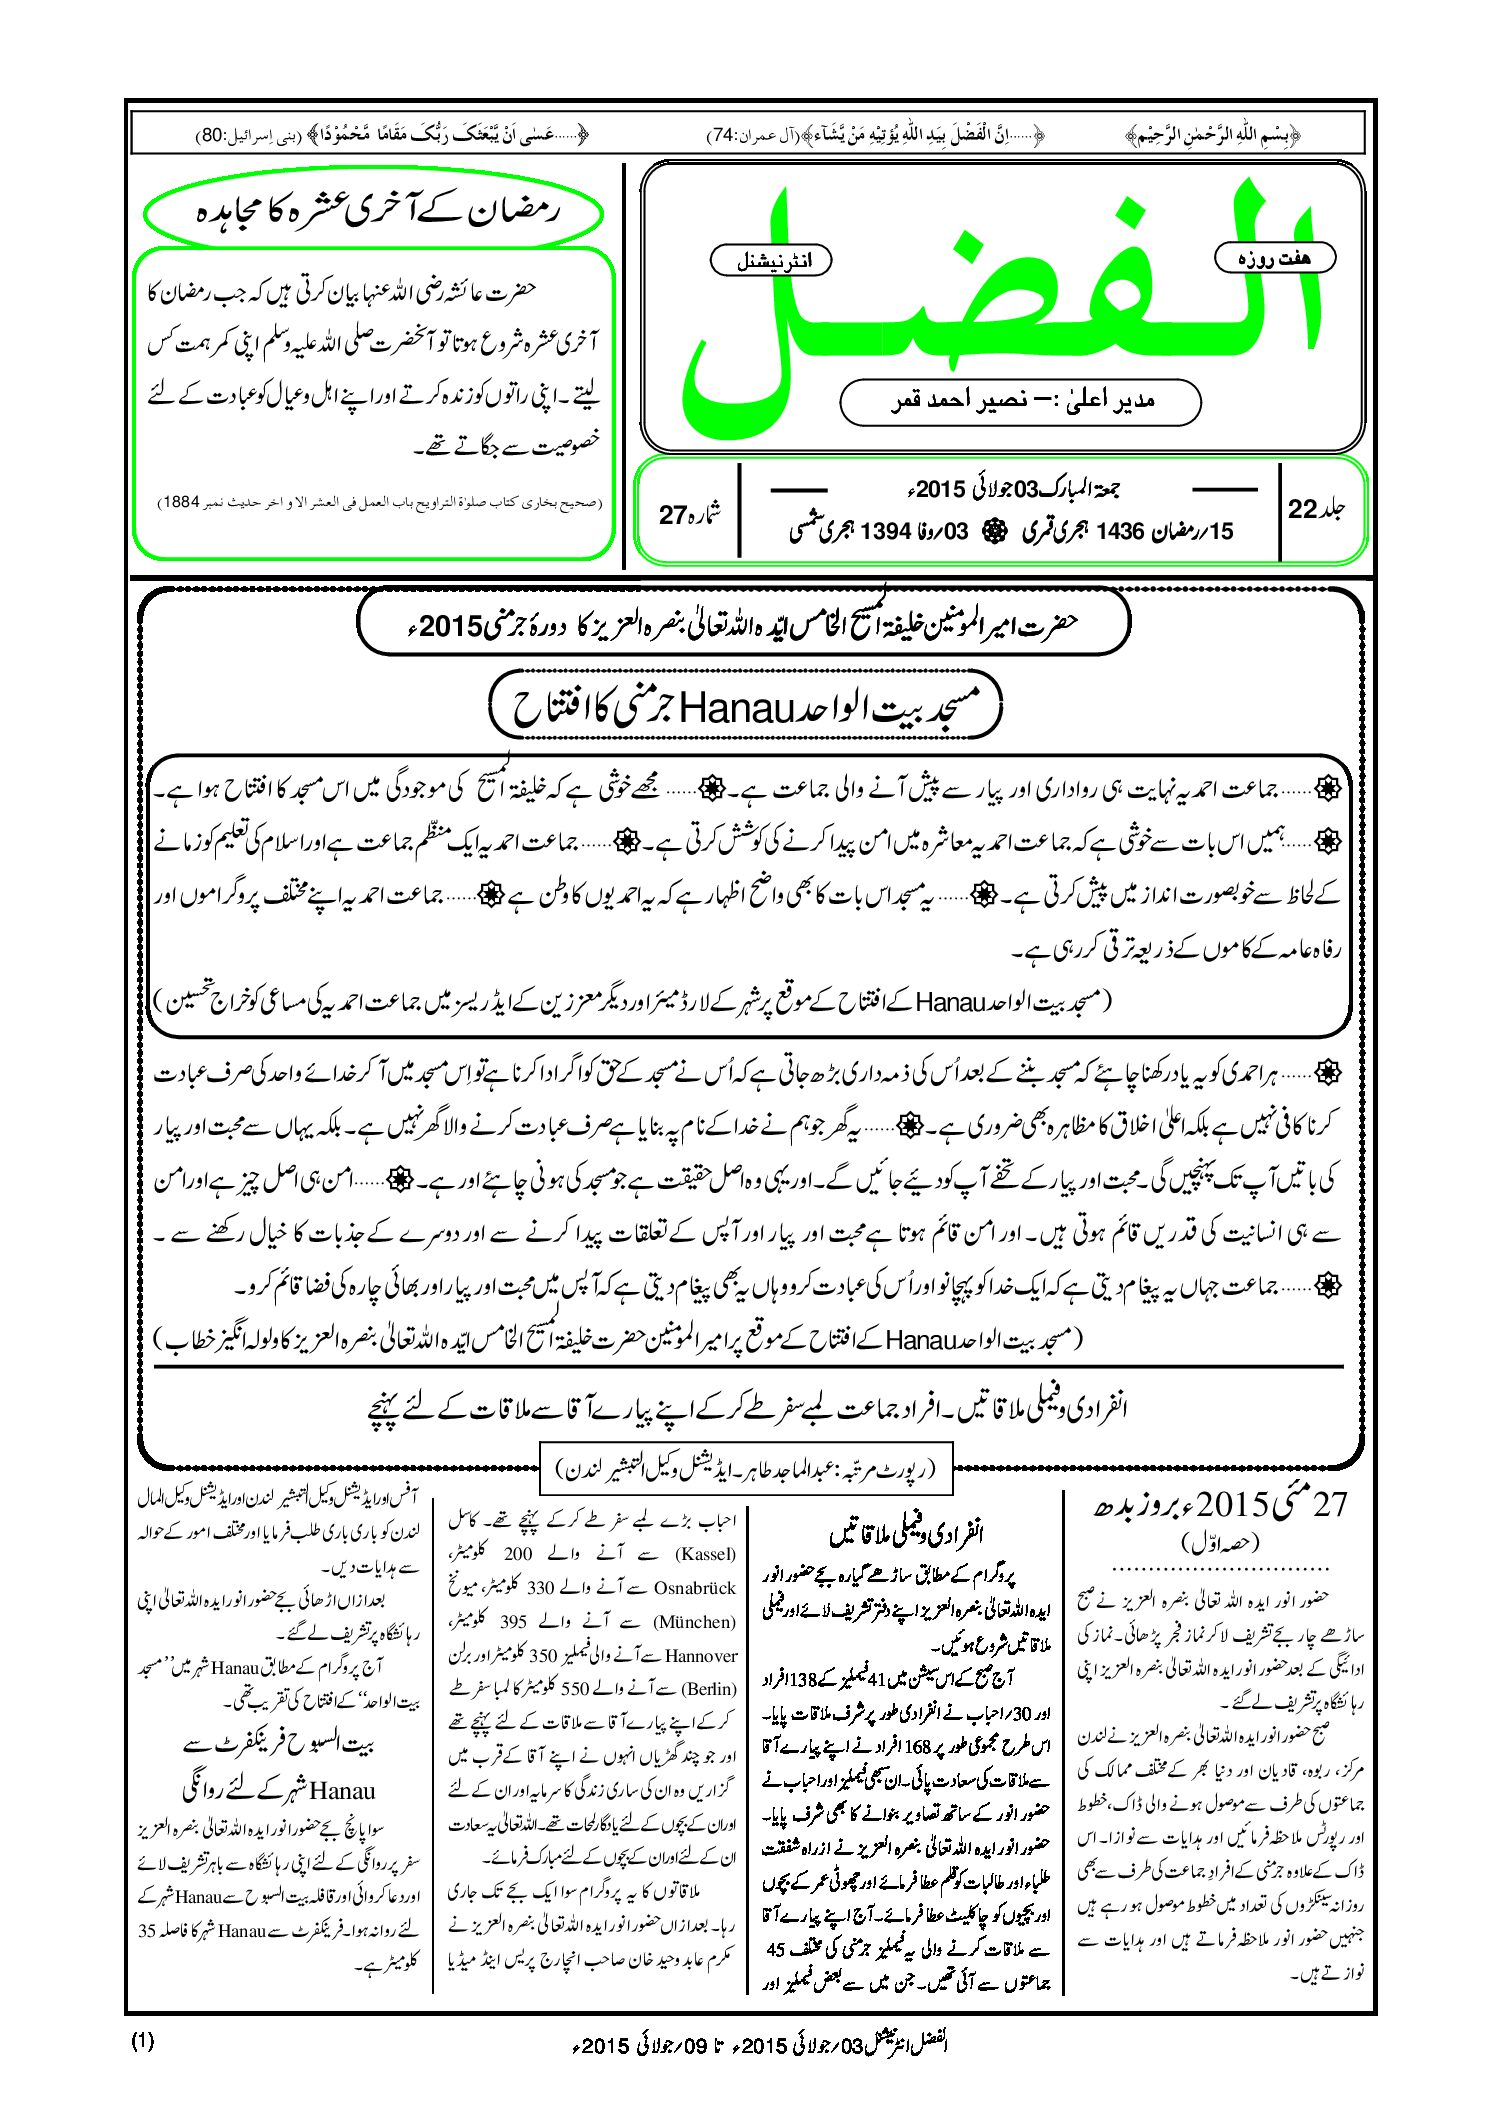 ﴿بِسْمِ اللهِ الرَّحْمٰنِ الرَّحِيْمِ﴾
﴿......اِنَّ الْفَضْلَ بِيَدِ اللهِ يُؤْتِيْهِ مَنْ يَّشَآء﴾(آل عمران:74)
﴿......عَسٰى اَنْ يَّبْعَثَكَ رَبُّكَ مَقَامًا مَّحْمُوْدًا﴾ (بنی اِسرائیل:80)
الفضل
ہفت روزہ
انٹرنیشنل
مدیر اعلیٰ :– نصیر احمد قمر
جلد 22
جمعۃ المبارک 03 جولائی 2015ء
15؍رمضان 1436 ہجری قمری 03؍وفا 1394 ہجری شمسی
شمارہ 27
رمضان کے آخری عشرہ کا مجاہدہ
حضرت عائشہ رضی اللہ عنہا بیان کرتی ہیں کہ جب رمضان کا
آخری عشرہ شروع ہوتا تو آنحضرت صلی اللہ علیہ وسلم اپنی کمر ہمت کس
لیتے ۔ اپنی راتوں کو زندہ کرتے اور اپنے اہل و عیال کو عبادت کے لئے
خصوصیت سے جگاتے تھے۔
(صحیح بخاری کتاب صلوٰۃ التراویح باب العمل فی العشر الاواخر حدیث نمبر 1884)
حضرت امیر المومنین خلیفۃ المسیح الخامس ایّدہ اللہ تعالیٰ بنصرہ العزیز کا دورۂ جرمنی 2015ء
مسجد بیت الواحد Hanau جرمنی کا افتتاح
...... جماعت احمدیہ نہایت ہی رواداری اور پیار سے پیش آنے والی جماعت ہے۔ ...... مجھے خوشی ہے کہ خلیفۃ المسیح کی موجودگی میں اس مسجد کا افتتاح ہوا ہے۔
......ہمیں اس بات سے خوشی ہے کہ جماعت احمدیہ معاشرہ میں امن پیدا کرنے کی کوشش کرتی ہے۔ ...... جماعت احمدیہ ایک منظّم جماعت ہے اور اسلام کی تعلیم کو زمانے
کے لحاظ سے خوبصورت انداز میں پیش کرتی ہے۔ ...... یہ مسجد اس بات کا بھی واضح اظہار ہے کہ یہ احمدیوں کا وطن ہے ...... جماعت احمدیہ اپنے مختلف پروگراموں اور
رفاہ عامہ کے کاموں کے ذریعہ ترقی کر رہی ہے۔
(مسجد بیت الواحد Hanau کے افتتاح کے موقع پر شہر کے لارڈ میئر اور دیگر معززین کے ایڈریسز میں جماعت احمدیہ کی مساعی کو خراج تحسین)
...... ہر احمدی کو یہ یاد رکھنا چاہئے کہ مسجد بننے کے بعد اُس کی ذمہ داری بڑھ جاتی ہے کہ اُس نے مسجد کے حق کو اگر ادا کرنا ہے تو اِس مسجد میں آ کر خدائے واحد کی صرف عبادت
کرنا کافی نہیں ہے بلکہ اعلیٰ اخلاق کا مظاہرہ بھی ضروری ہے۔ ...... یہ گھر جو ہم نے خدا کے نام پہ بنایا ہے صرف عبادت کرنے والا گھر نہیں ہے۔ بلکہ یہاں سے محبت اور پیار
کی باتیں آپ تک پہنچیں گی۔ محبت اور پیار کے تحفے آپ کو دیئے جائیں گے۔ اور یہی وہ اصل حقیقت ہے جو مسجد کی ہونی چاہئے اور ہے۔ ......امن ہی اصل چیز ہے اور امن
سے ہی انسانیت کی قدریں قائم ہوتی ہیں۔ اور امن قائم ہوتا ہے محبت اور پیار اور آپس کے تعلقات پیدا کرنے سے اور دوسرے کے جذبات کا خیال رکھنے سے ۔
...... جماعت جہاں یہ پیغام دیتی ہے کہ ایک خدا کو پہچانو اور اُس کی عبادت کرو وہاں یہ بھی پیغام دیتی ہے کہ آپس میں محبت اور پیار اور بھائی چارہ کی فضا قائم کرو۔
(مسجد بیت الواحد Hanau کے افتتاح کے موقع پر امیر المومنین حضرت خلیفۃ المسیح الخامس ایّدہ اللہ تعالیٰ بنصرہ العزیز کا ولولہ انگیز خطاب)
انفرادی و فیملی ملاقاتیں۔ افراد جماعت لمبے سفر طے کر کے اپنے پیارے آقا سے ملاقات کے لئے پہنچے
(رپورٹ مرتبہ: عبدالماجد طاہر۔ ایڈیشنل وکیل التبشیر لندن)
27 مئی 2015ء بروز بدھ
(حصہ اوّل)
حضور انور ایدہ اللہ تعالیٰ بنصرہ العزیز نے صبح
ساڑھے چار بجے تشریف لا کر نماز فجر پڑھائی۔ نماز کی
ادائیگی کے بعد حضور انور ایدہ اللہ تعالیٰ بنصرہ العزیز اپنی
رہائشگاہ پر تشریف لے گئے ۔
صبح حضور انور ایدہ اللہ تعالیٰ بنصرہ العزیز نے لندن
مرکز، ربوہ، قادیان اور دنیا بھر کے مختلف ممالک کی
جماعتوں کی طرف سے موصول ہونے والی ڈاک، خطوط
اور رپورٹس ملاحظہ فرمائیں اور ہدایات سے نوازا۔ اس
ڈاک کے علاوہ جرمنی کے افرادِ جماعت کی طرف سے بھی
روزانہ سینکڑوں کی تعداد میں خطوط موصول ہو رہے ہیں
جنہیں حضور انور ملاحظہ فرماتے ہیں اور ہدایات سے
نوازتے ہیں۔
انفرادی و فیملی ملاقاتیں
پروگرام کے مطابق ساڑھے گیارہ بجے حضور انور
ایدہ اللہ تعالیٰ بنصرہ العزیز اپنے دفتر تشریف لائے اور فیملی
ملاقاتیں شروع ہوئیں۔
آج صبح کے اس سیشن میں 41 فیملیز کے 138 افراد
اور 30؍احباب نے انفرادی طور پر شرف ملاقات پایا۔
اس طرح مجموعی طور پر 168 افراد نے اپنے پیارے آقا
سے ملاقات کی سعادت پائی۔ ان سبھی فیملیز اور احباب نے
حضور انور کے ساتھ تصاویر بنوانے کا بھی شرف پایا۔
حضور انور ایدہ اللہ تعالیٰ بنصرہ العزیز نے ازراہ شفقت
طلباء اور طالبات کو قلم عطا فرمائے اور چھوٹی عمر کے بچوں
اور بچیوں کو چاکلیٹ عطا فرمائے۔ آج اپنے پیارے آقا
سے ملاقات کرنے والی یہ فیملیز جرمنی کی مختلف 45
جماعتوں سے آئی تھیں۔ جن میں سے بعض فیملیز اور
احباب بڑے لمبے سفر طے کر کے پہنچے تھے۔ کاسل
(Kassel) سے آنے والے 200 کلومیٹر،
Osnabrück سے آنے والے 330 کلومیٹر، میونخ
(München) سے آنے والے 395 کلومیٹر،
Hannover سے آنے والی فیملیز 350 کلومیٹر اور برلن
(Berlin) سے آنے والے 550 کلومیٹر کا لمبا سفر طے
کر کے اپنے پیارے آقا سے ملاقات کے لئے پہنچے تھے
اور جو چند گھڑیاں انہوں نے اپنے آقا کے قرب میں
گزاریں وہ ان کی ساری زندگی کا سرمایہ اور ان کے لئے
اور ان کے بچوں کے لئے یادگار لمحات تھے۔ اللہ تعالیٰ یہ سعادت
ان کے لئے اور ان کے بچوں کے لئے مبارک فرمائے۔
ملاقاتوں کا یہ پروگرام سوا ایک بجے تک جاری
رہا۔ بعد ازاں حضور انور ایدہ اللہ تعالیٰ بنصرہ العزیز نے
مکرم عابد وحید خان صاحب انچارج پریس اینڈ میڈیا
آفس اور ایڈیشنل وکیل التبشیر لندن اور ایڈیشنل وکیل المال
لندن کو باری باری طلب فرمایا اور مختلف امور کے حوالہ
سے ہدایات دیں۔
بعد ازاں اڑھائی بجے حضور انور ایدہ اللہ تعالیٰ اپنی
رہائشگاہ پر تشریف لے گئے۔
آج پروگرام کے مطابق Hanau شہر میں ’’مسجد
بیت الواحد‘‘ کے افتتاح کی تقریب تھی۔
بیت السبوح فرینکفرٹ سے
Hanau شہر کے لئے روانگی
سوا پانچ بجے حضور انور ایدہ اللہ تعالیٰ بنصرہ العزیز
سفر پر روانگی کے لئے اپنی رہائشگاہ سے باہر تشریف لائے
اور دعا کروائی اور قافلہ بیت السبوح سے Hanau شہر کے
لئے روانہ ہوا۔ فرینکفرٹ سے Hanau شہر کا فاصلہ 35
کلومیٹر ہے۔
الفضل انٹرنیشنل 03؍جولائی 2015ء تا 09؍جولائی 2015ء
(1)